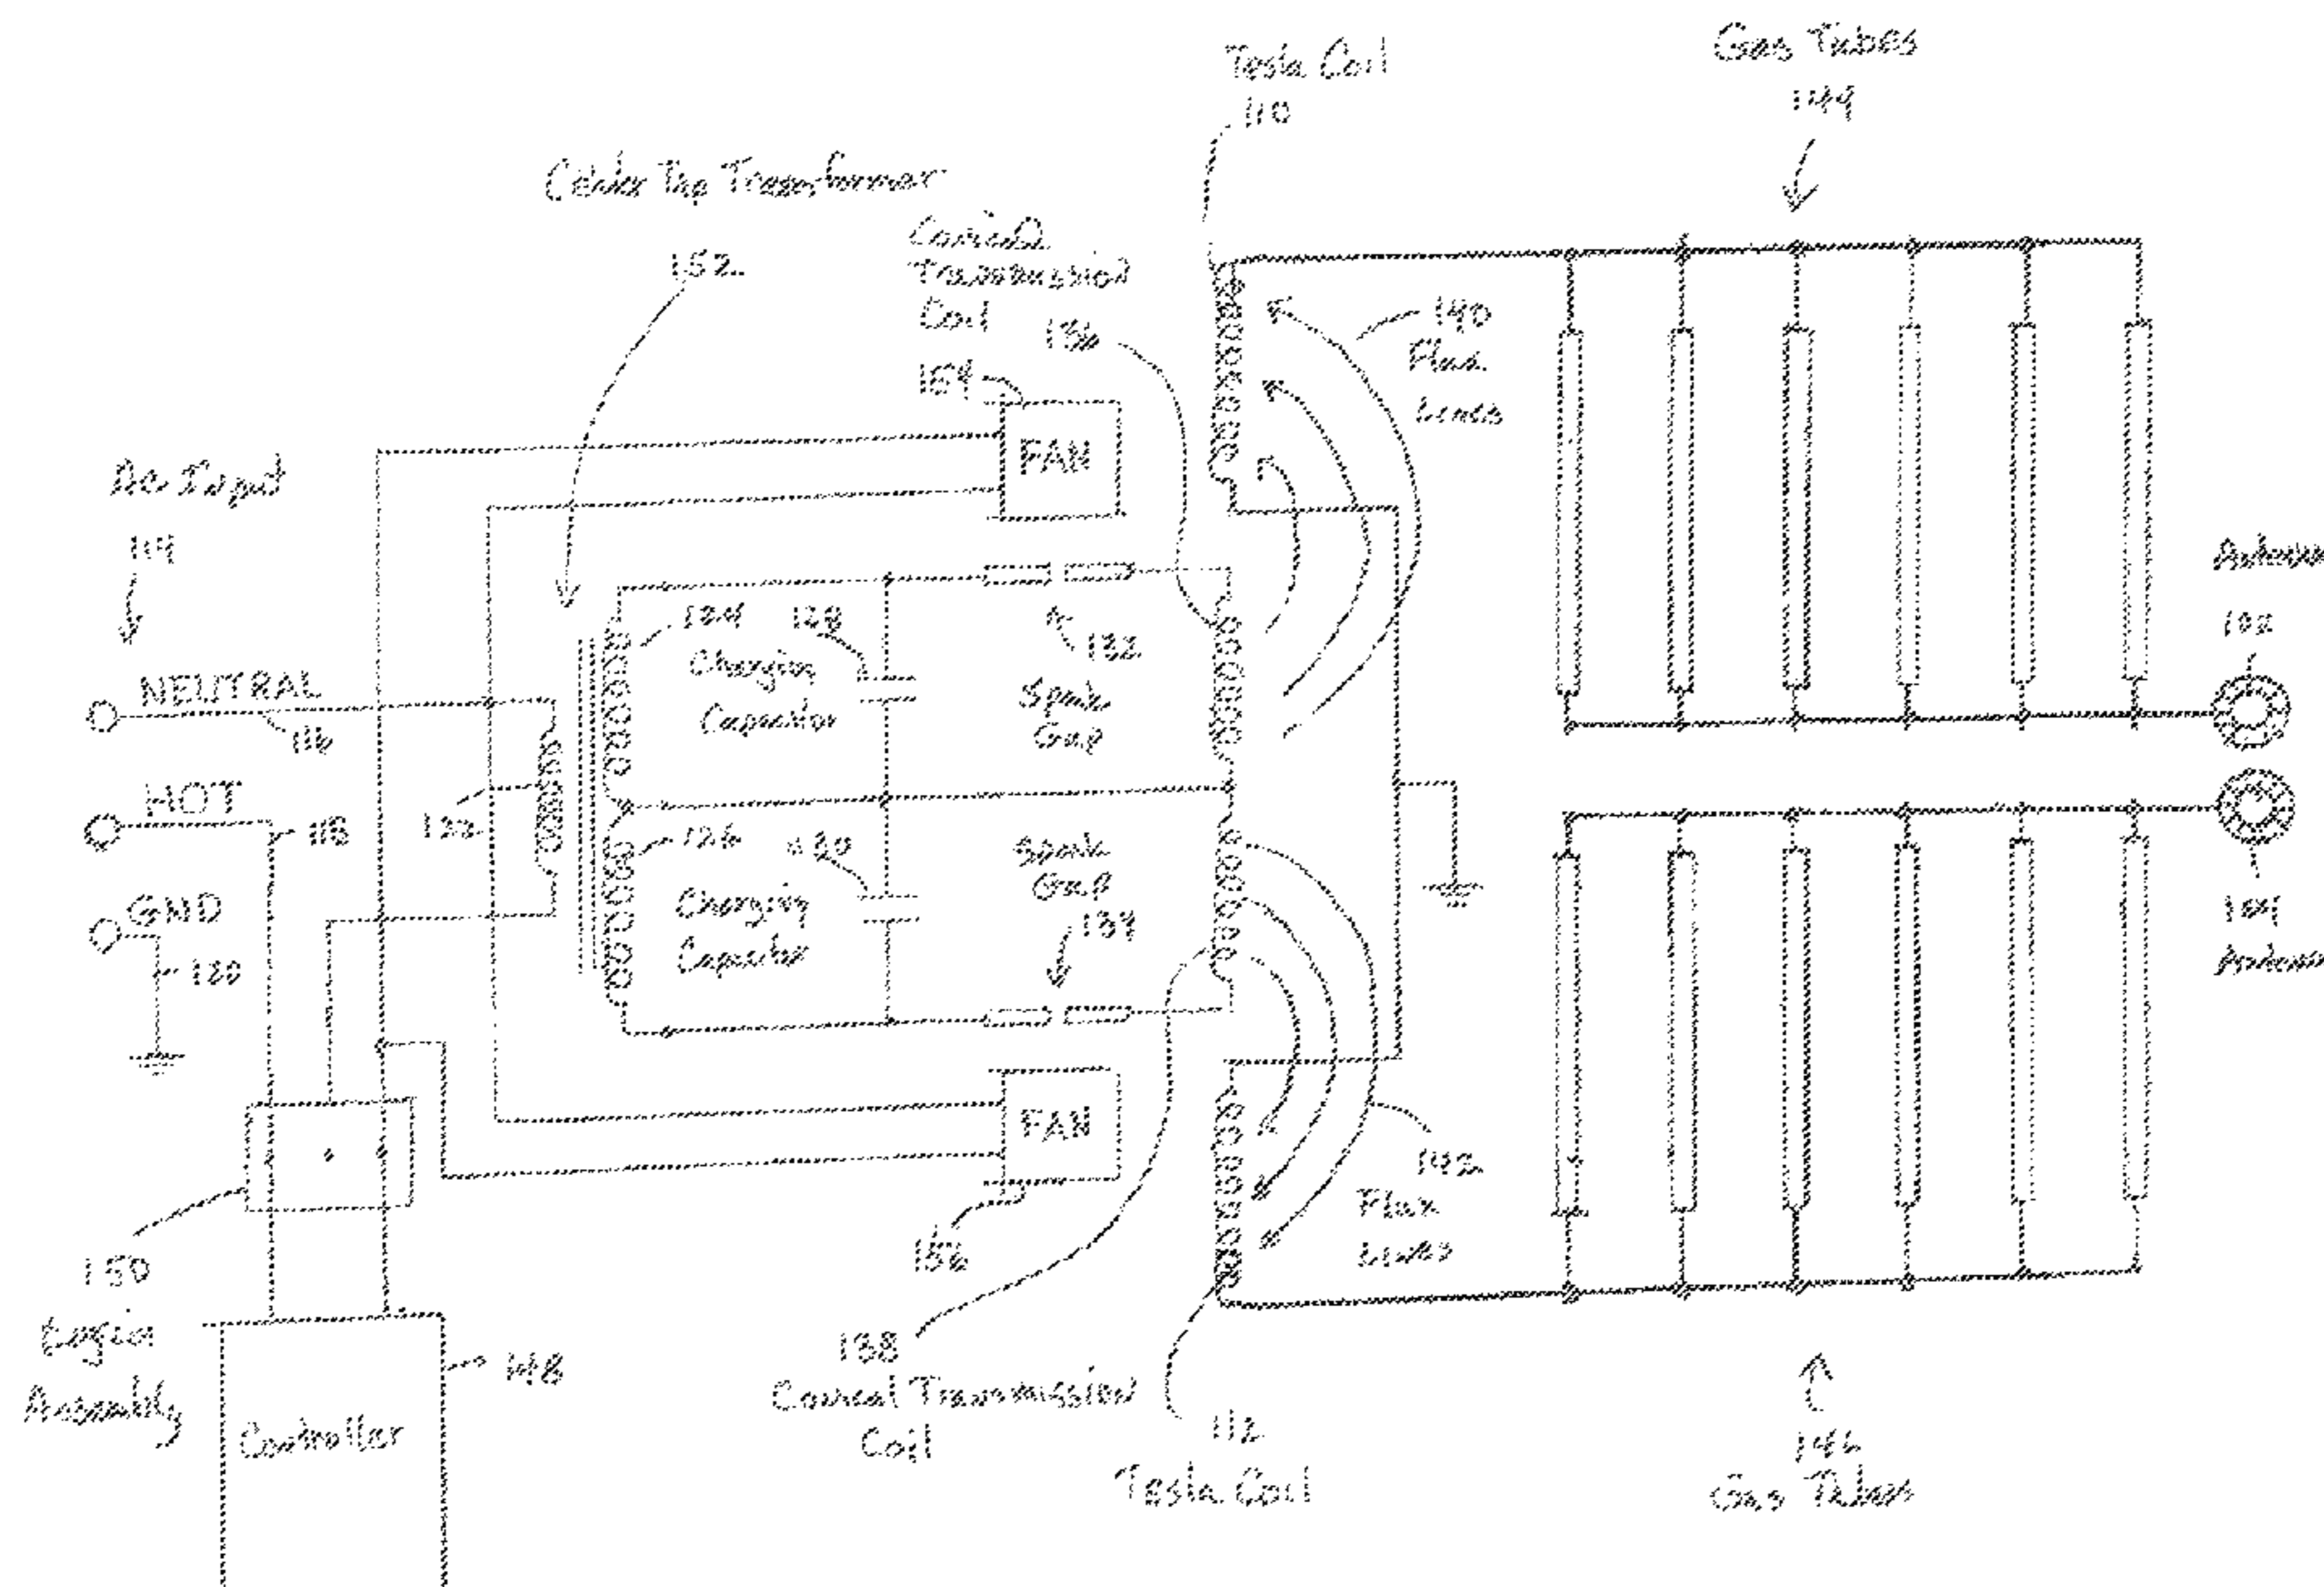 Gas Tubes
144
Tesla Coil
110
Center Tap Transformer
152
Conical
Transmission
Coil
136
154
FAN
140
Flux
Lines
AC Input
114
NEUTRAL
116
HOT
118
GND
120
122
124
128
Charging
Capacitor
132
Spark
Gap
126
Charging
Capacitor
Spark
Gap
134
Antenna
102
104
Antenna
FAN
156
142
Flux
Lines
150
Assembly
148
Controller
138
Conical Transmission
Coil
112
Tesla Coil
146
Gas Tubes